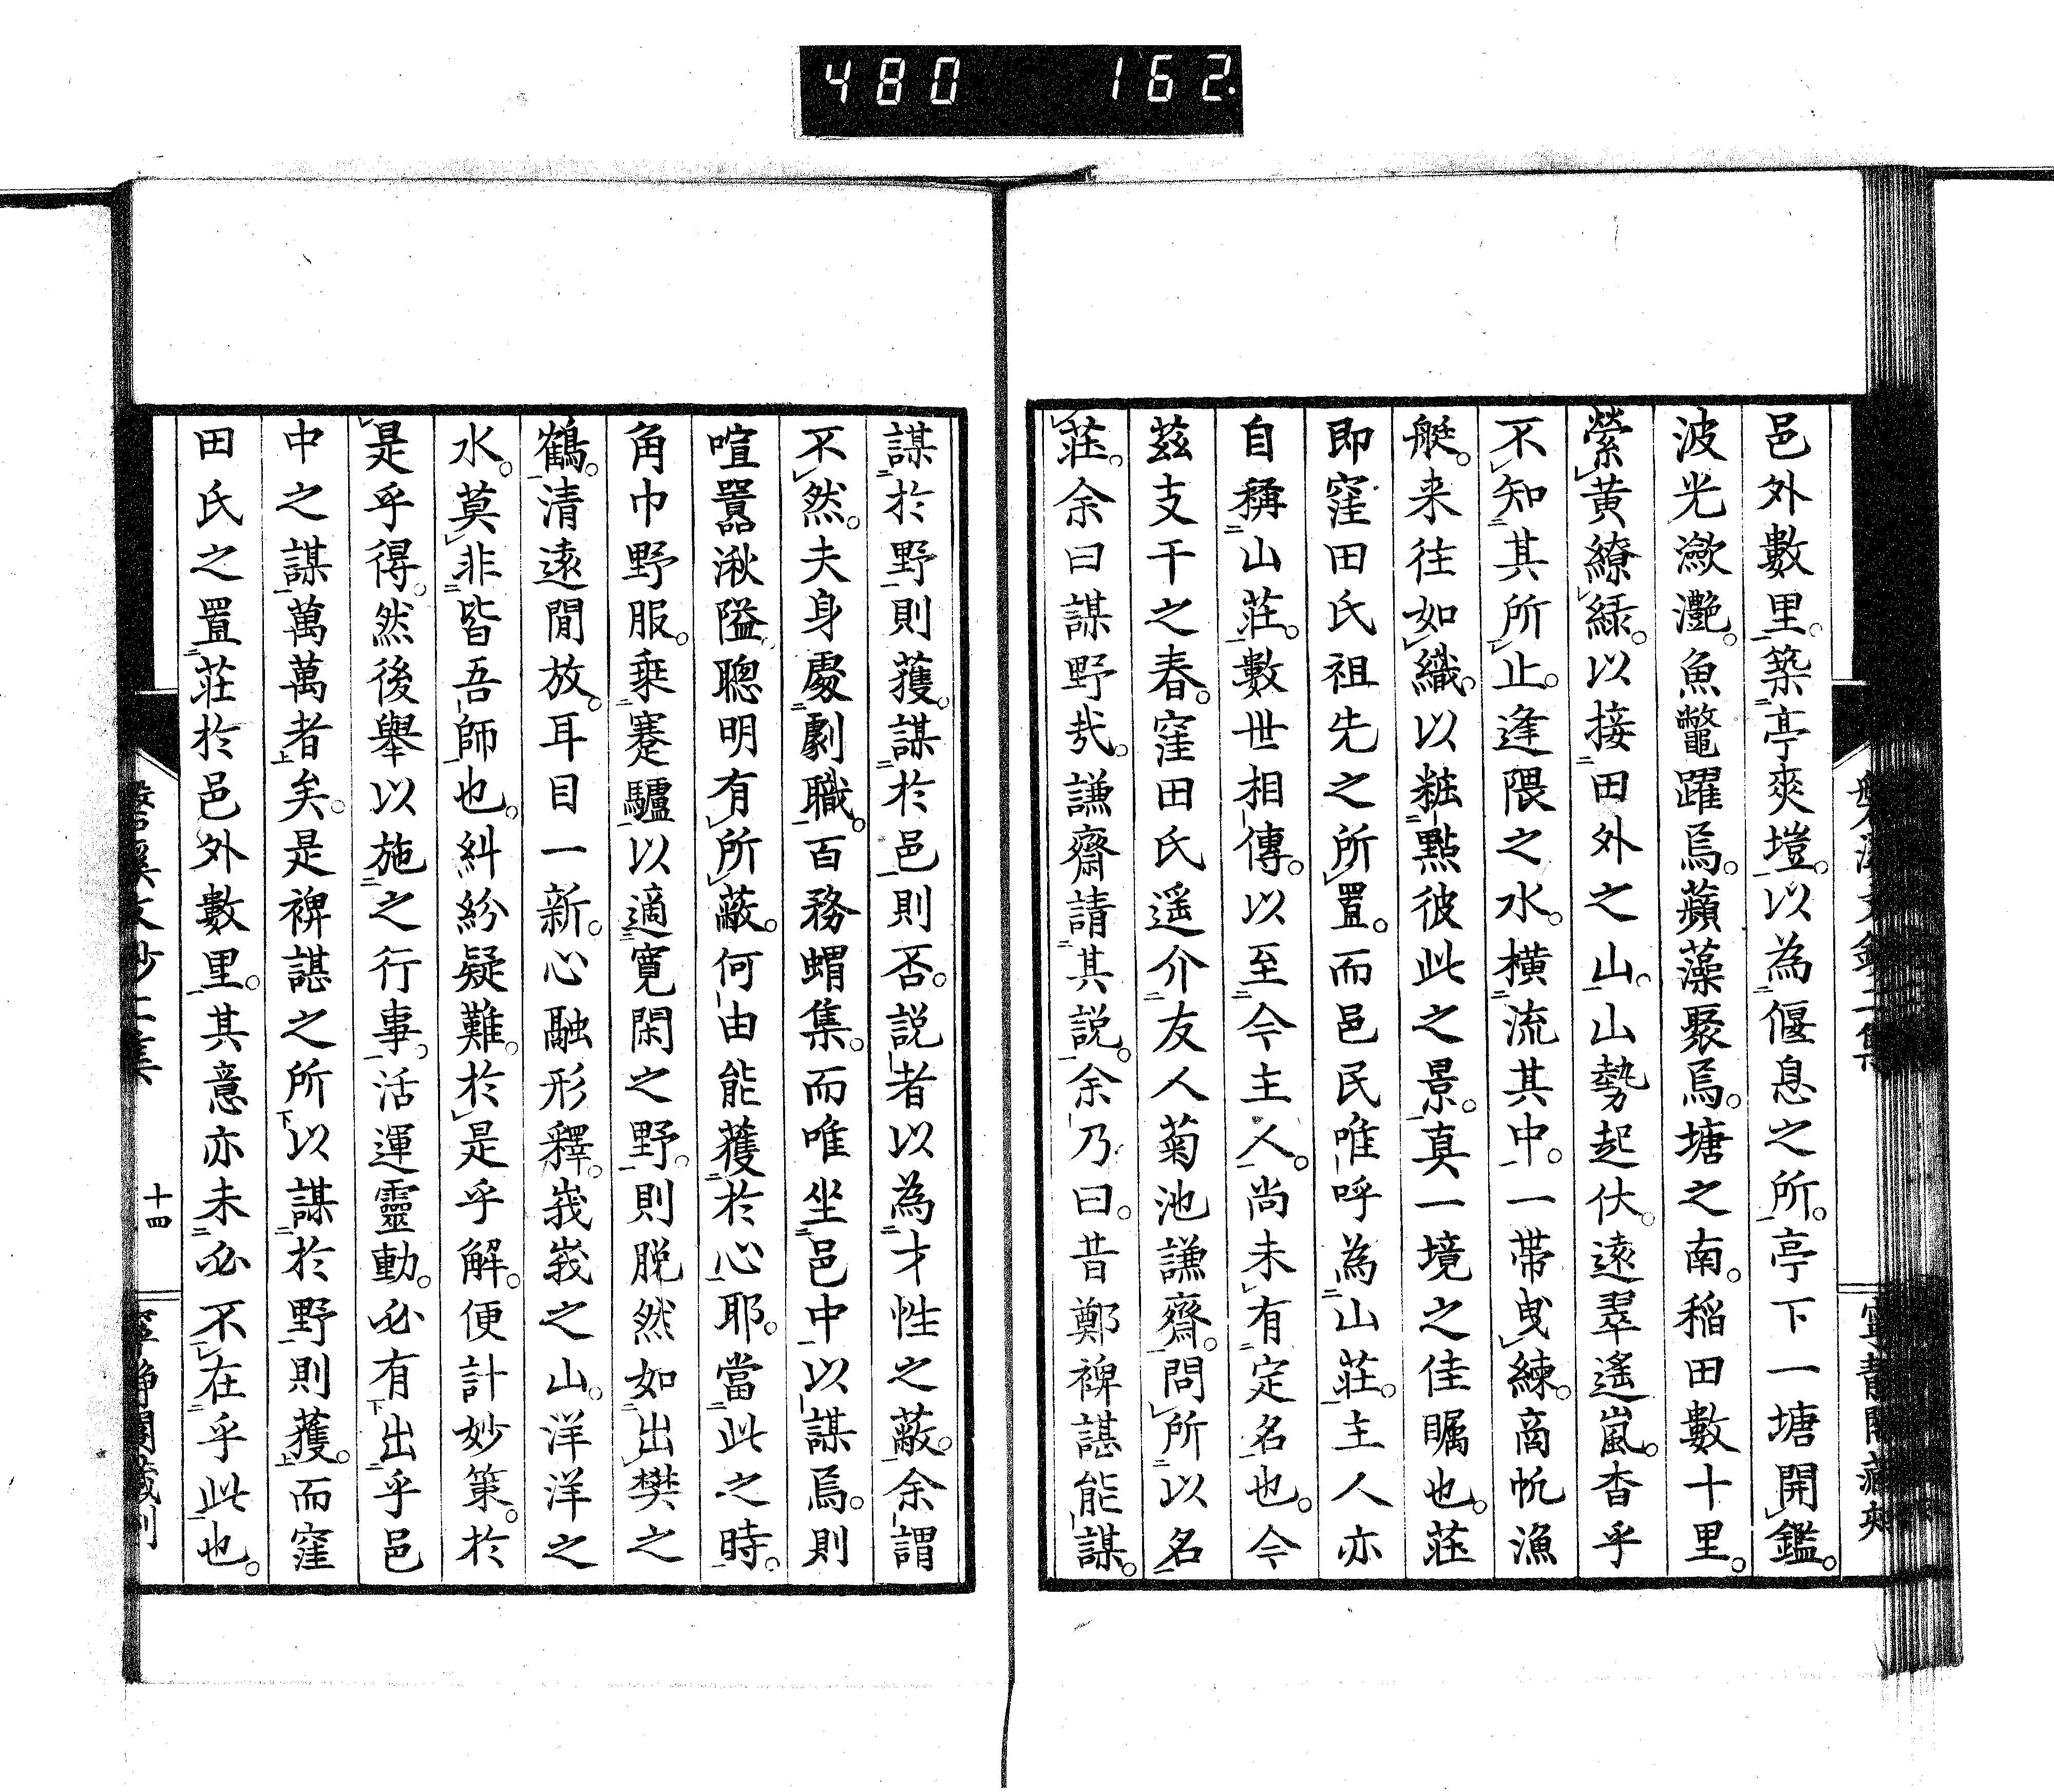 480 162.
邑外數里。築亭爽塏。以為偃息之所。亭下一塘開鑑。
波光瀲灔。魚鼈躍焉。蘋藻聚焉。塘之南。稲田數十里。
縈黄繚緑。以接田外之山。山勢起伏。遠翠遙嵐。杳乎
不知其所止。逢隈之水。橫流其中。一帶曳練。商帆漁
艇。来往如織。以粧點彼此之景。真一境之佳矚也。莊
即窪田氏祖先之所置。而邑民唯呼為山莊。主人亦
自稱山莊。數世相傳。以至今主人。尚未有定名也。今
茲支干之春。窪田氏遥介友人菊池謙齋。問所以名
莊。余曰謀野哉。謙齋請其説。余乃曰。昔鄭裨諶能謀。
謀於野則獲。謀於邑則否。説者以為才性之蔽。余謂
不然。夫身處劇職。百務蝟集。而唯坐邑中以謀焉。則
喧囂湫隘聰明有所蔽。何由能獲於心耶。當此之時。
角巾野服。乗蹇驢以適寛閑之野。則脱然如出樊之
鶴。清遠閒放。耳目一新。心融形釋。峩峩之山。洋洋之
水。莫非皆吾師也。糾紛疑難。於是乎解。便計妙策。於
是乎得。然後舉以施之行事。活運靈動。必有出乎邑
中之謀萬萬者矣。是裨諶之所以謀於野則獲。而窪
田氏之置莊於邑外數里。其意亦未必不在乎此也。
十四